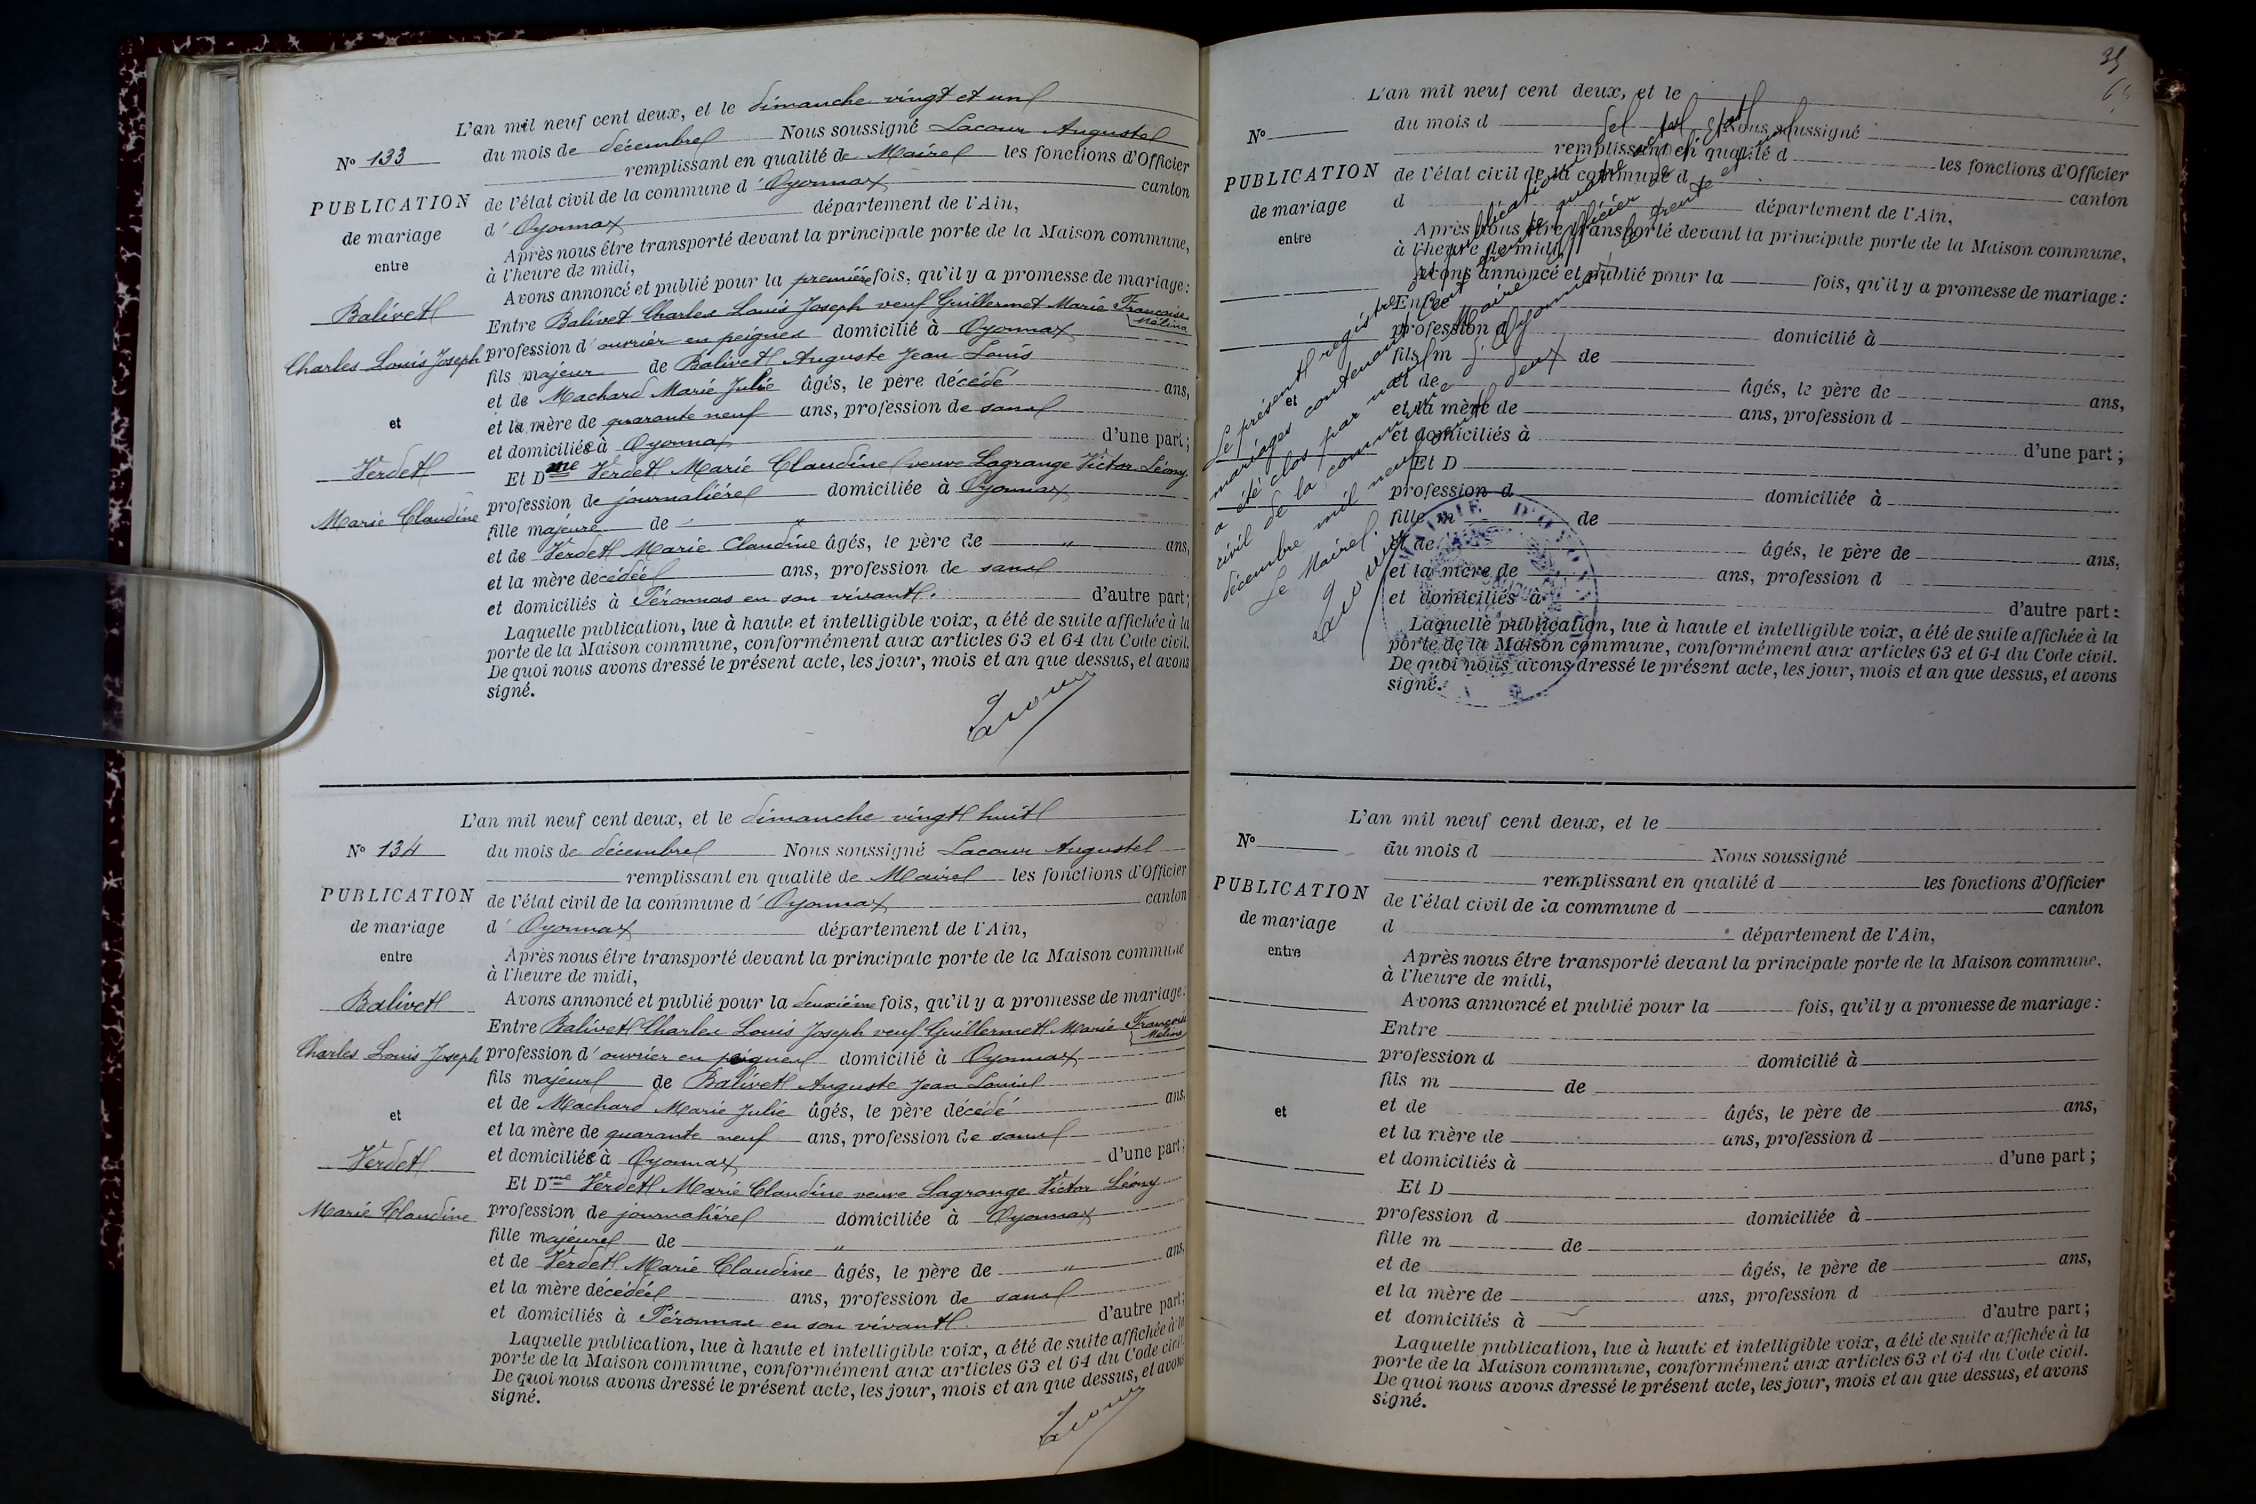 L'an mil neuf cent deux, et le dimanche vingt et un
N° 133
du mois de décembre Nous soussigné Lacour Auguste
remplissant en qualité de Maire les fonctions d'Officier
PUBLICATION
de mariage
entre
de l'état civil de la commune d'Oyonnax canton
d'Oyonnax département de l'Ain,
Après nous être transporté devant la principale porte de la Maison commune,
à l'heure de midi,
Avons annoncé et publié pour la première fois, qu'il y a promesse de mariage :
Balivet
Charles Louis Joseph
Entre Balivet Charles Louis Joseph veuf Guillermet Marie Françoise
Mélina
profession d'ouvrier en peignes domicilié à Oyonnax
fils majeur de Balivet Auguste Jean Louis
et de Machard Marie Julie âgés, le père décédé ans,
et la mère de quarante neuf ans, profession de sans
et domiciliés à Oyonnax d'une part ;
et
Verdet
Marie Claudine
Et Dme Verdet Marie Claudine veuve Lagrange Victor Léony
profession de journalière domiciliée à Oyonnax
fille majeure de "
et de Verdet Marie Claudine âgés, le père de " ans,
et la mère décédée ans, profession de sans
et domiciliés à Péronnas en son vivant. d'autre part ;
Laquelle publication, lue à haute et intelligible voix, a été de suite affichée à la
porte de la Maison commune, conformément aux articles 63 et 64 du Code civil.
De quoi nous avons dressé le présent acte, les jour, mois et an que dessus, et avons
signé.
Lacour
L'an mil neuf cent deux, et le dimanche vingt huit
N° 134
du mois de décembre Nous soussigné Lacour Auguste
remplissant en qualité de Maire les fonctions d'Officier
PUBLICATION
de mariage
entre
de l'état civil de la commune d'Oyonnax canton
d'Oyonnax département de l'Ain,
Après nous être transporté devant la principale porte de la Maison commune
à l'heure de midi,
Avons annoncé et publié pour la deuxième fois, qu'il y a promesse de mariage :
Balivet
Charles Louis Joseph
Entre Balivet Charles Louis Joseph veuf Guillermet Marie Françoise
Mélina
profession d'ouvrier en peignes domicilié à Oyonnax
fils majeur de Balivet Auguste Jean Louis
et de Machard Marie Julie âgés, le père décédé ans,
et la mère de quarante neuf ans, profession de sans
et domiciliés à Oyonnax d'une part ;
et
Verdet
Marie Claudine
Et Dme Verdet Marie Claudine veuve Lagrange Victor Léony
profession de journalière domiciliée à Oyonnax
fille majeure de "
et de Verdet Marie Claudine âgés, le père de " ans,
et la mère décédée ans, profession de sans
et domiciliés à Péronnas en son vivant. d'autre part ;
Laquelle publication, lue à haute et intelligible voix, a été de suite affichée à la
porte de la Maison commune, conformément aux articles 63 et 64 du Code civil.
De quoi nous avons dressé le présent acte, les jour, mois et an que dessus, et avons
signé.
Lacour
L'an mil neuf cent deux, et le
N°
du mois d Nous soussigné
remplissant en qualité d les fonctions d'Officier
PUBLICATION
de mariage
entre
de l'état civil de la commune d canton
d département de l'Ain,
Après nous être transporté devant la principale porte de la Maison commune,
à l'heure de midi,
Avons annoncé et publié pour la fois, qu'il y a promesse de mariage :
Entre
profession d domicilié à
fils m de
et de âgés, le père de ans,
et
et la mère de ans, profession d
et domiciliés à d'une part ;
Et D
profession d domiciliée à
fille m de
et de âgés, le père de ans,
et la mère de ans, profession d
et domiciliés à d'autre part :
Laquelle publication, lue à haute et intelligible voix, a été de suite affichée à la
porte de la Maison commune, conformément aux articles 63 et 64 du Code civil.
De quoi nous avons dressé le présent acte, les jour, mois et an que dessus, et avons
signé.
Le présent registre de publications de
mariages contenant cent trente quatre actes
a été clos par nous Maire officier de l'état
civil de la commune d'Oyonnax le trente et un
décembre mil neuf cent deux
Le Maire.
Lacour
MAIRIE D'OYONNAX
L'an mil neuf cent deux, et le
N°
du mois d Nous soussigné
remplissant en qualité d les fonctions d'Officier
PUBLICATION
de mariage
entre
de l'état civil de la commune d canton
d département de l'Ain,
Après nous être transporté devant la principale porte de la Maison commune,
à l'heure de midi,
Avons annoncé et publié pour la fois, qu'il y a promesse de mariage :
Entre
profession d domicilié à
fils m de
et de âgés, le père de ans,
et
et la mère de ans, profession d
et domiciliés à d'une part ;
Et D
profession d domiciliée à
fille m de
et de âgés, le père de ans,
et la mère de ans, profession d
et domiciliés à d'autre part ;
Laquelle publication, lue à haute et intelligible voix, a été de suite affichée à la
porte de la Maison commune, conformément aux articles 63 et 64 du Code civil.
De quoi nous avons dressé le présent acte, les jour, mois et an que dessus, et avons
signé.